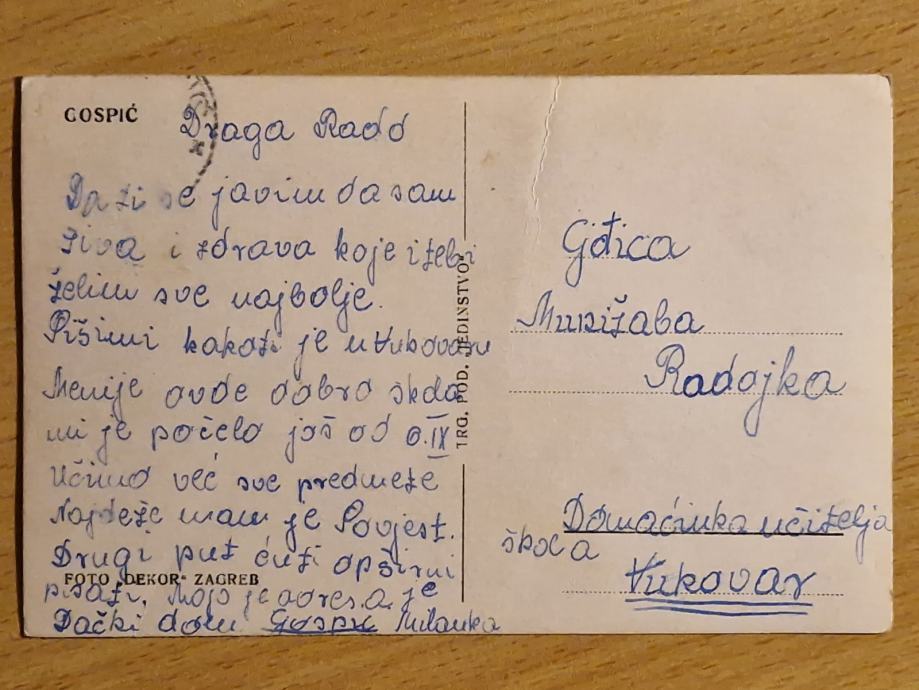 GOSPIĆ
Draga Rado
Da ti se javim da sam
živa i zdrava koje i tebi
želim sve najbolje.
Piši mi kako ti je u Vukovaru
Meni je ovde dobro škola
mi je počelo još od 6.IX
Učimo već sve predmete
Najteže mam je Povjest.
Drugi put ću ti opširni
pisati. Moja je adresa je
Đački dom Gospić Milanka
FOTO „DEKOR“ ZAGREB
TRG. POD. „JEDINSTVO“
Gđica
Munižaba
Radojka
Domaćinka učitelja
škola
Vukovar